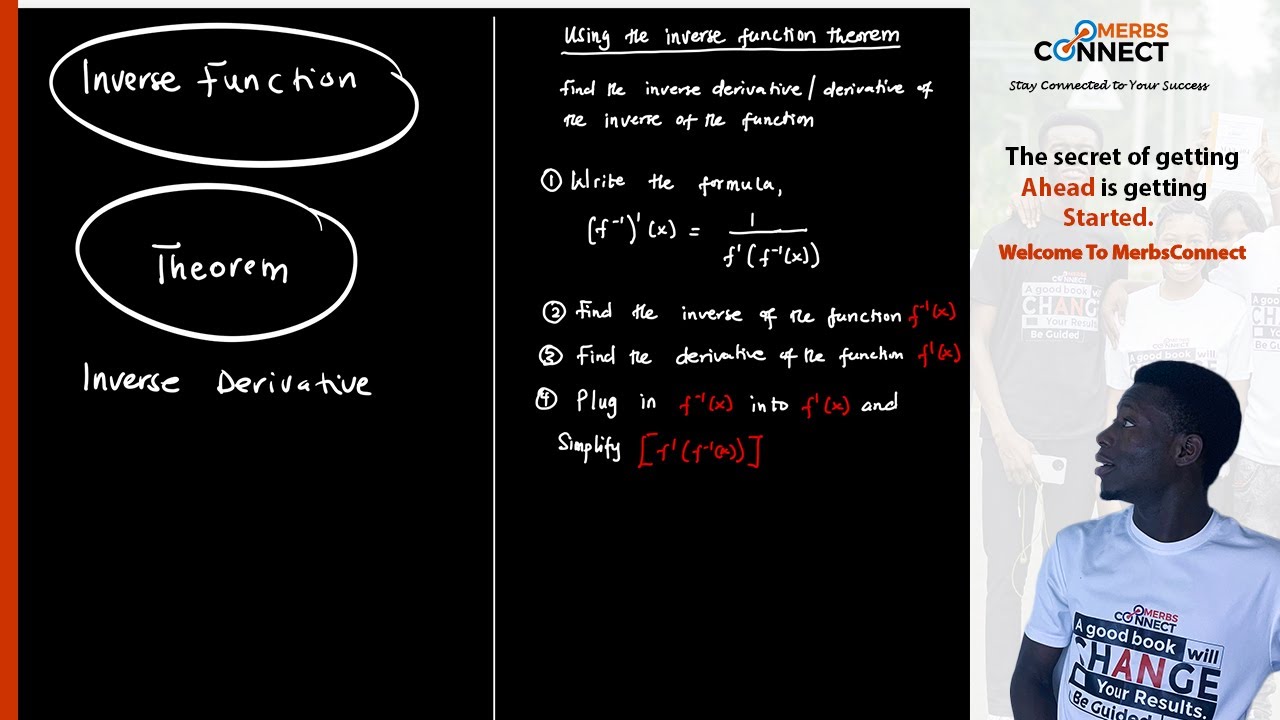 Inverse Function
Theorem
Inverse Derivative
Using the inverse function theorem
Find the inverse derivative / derivative of
the inverse of the function
① Write the formula,
(f⁻¹)'(x) = 1 / f'(f⁻¹(x))
② Find the inverse of the function f⁻¹(x)
③ Find the derivative of the function f'(x)
④ Plug in f⁻¹(x) into f'(x) and
Simplify [f'(f⁻¹(x))]
MERBS
CONNECT
Stay Connected to Your Success
The secret of getting
Ahead is getting
Started.
Welcome To MerbsConnect
A good book
will
CHANGE
Your Results
Be Guided
MERBS
CONNECT
A good book will
CHANGE
Your Results.
Be Guided